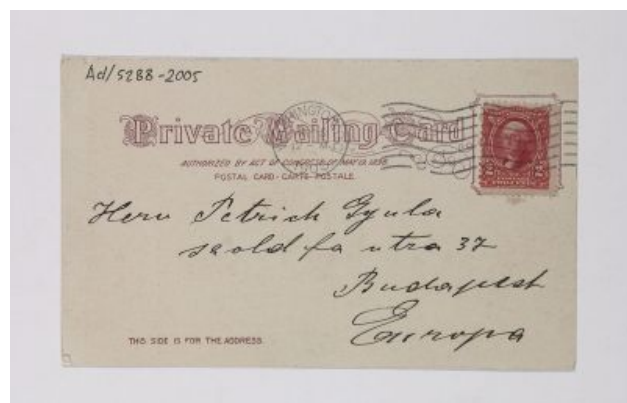 Ad/5288-2005
Private Mailing Card
AUTHORIZED BY ACT OF CONGRESS OF MAY 19, 1898.
POSTAL CARD-CARTE POSTALE.
Herr Petrich Gyula
utca 37
Budapest
Europa
THIS SIDE IS FOR THE ADDRESS.